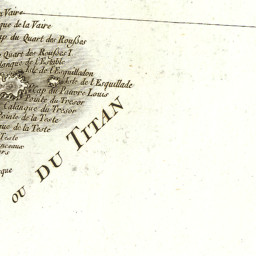 la Vaire
que de la Vaire
du Quart des Rousses
Quart des Rousses I
lanque de l'Estible
Isle de l'Esquilladon
Isle de l'Esquillade
Cap du Pauvre Louis
Pointe du Tresor
Calanque du Tresor
Pointe de la Teste
que de la Teste
Teste
OU DU TITAN